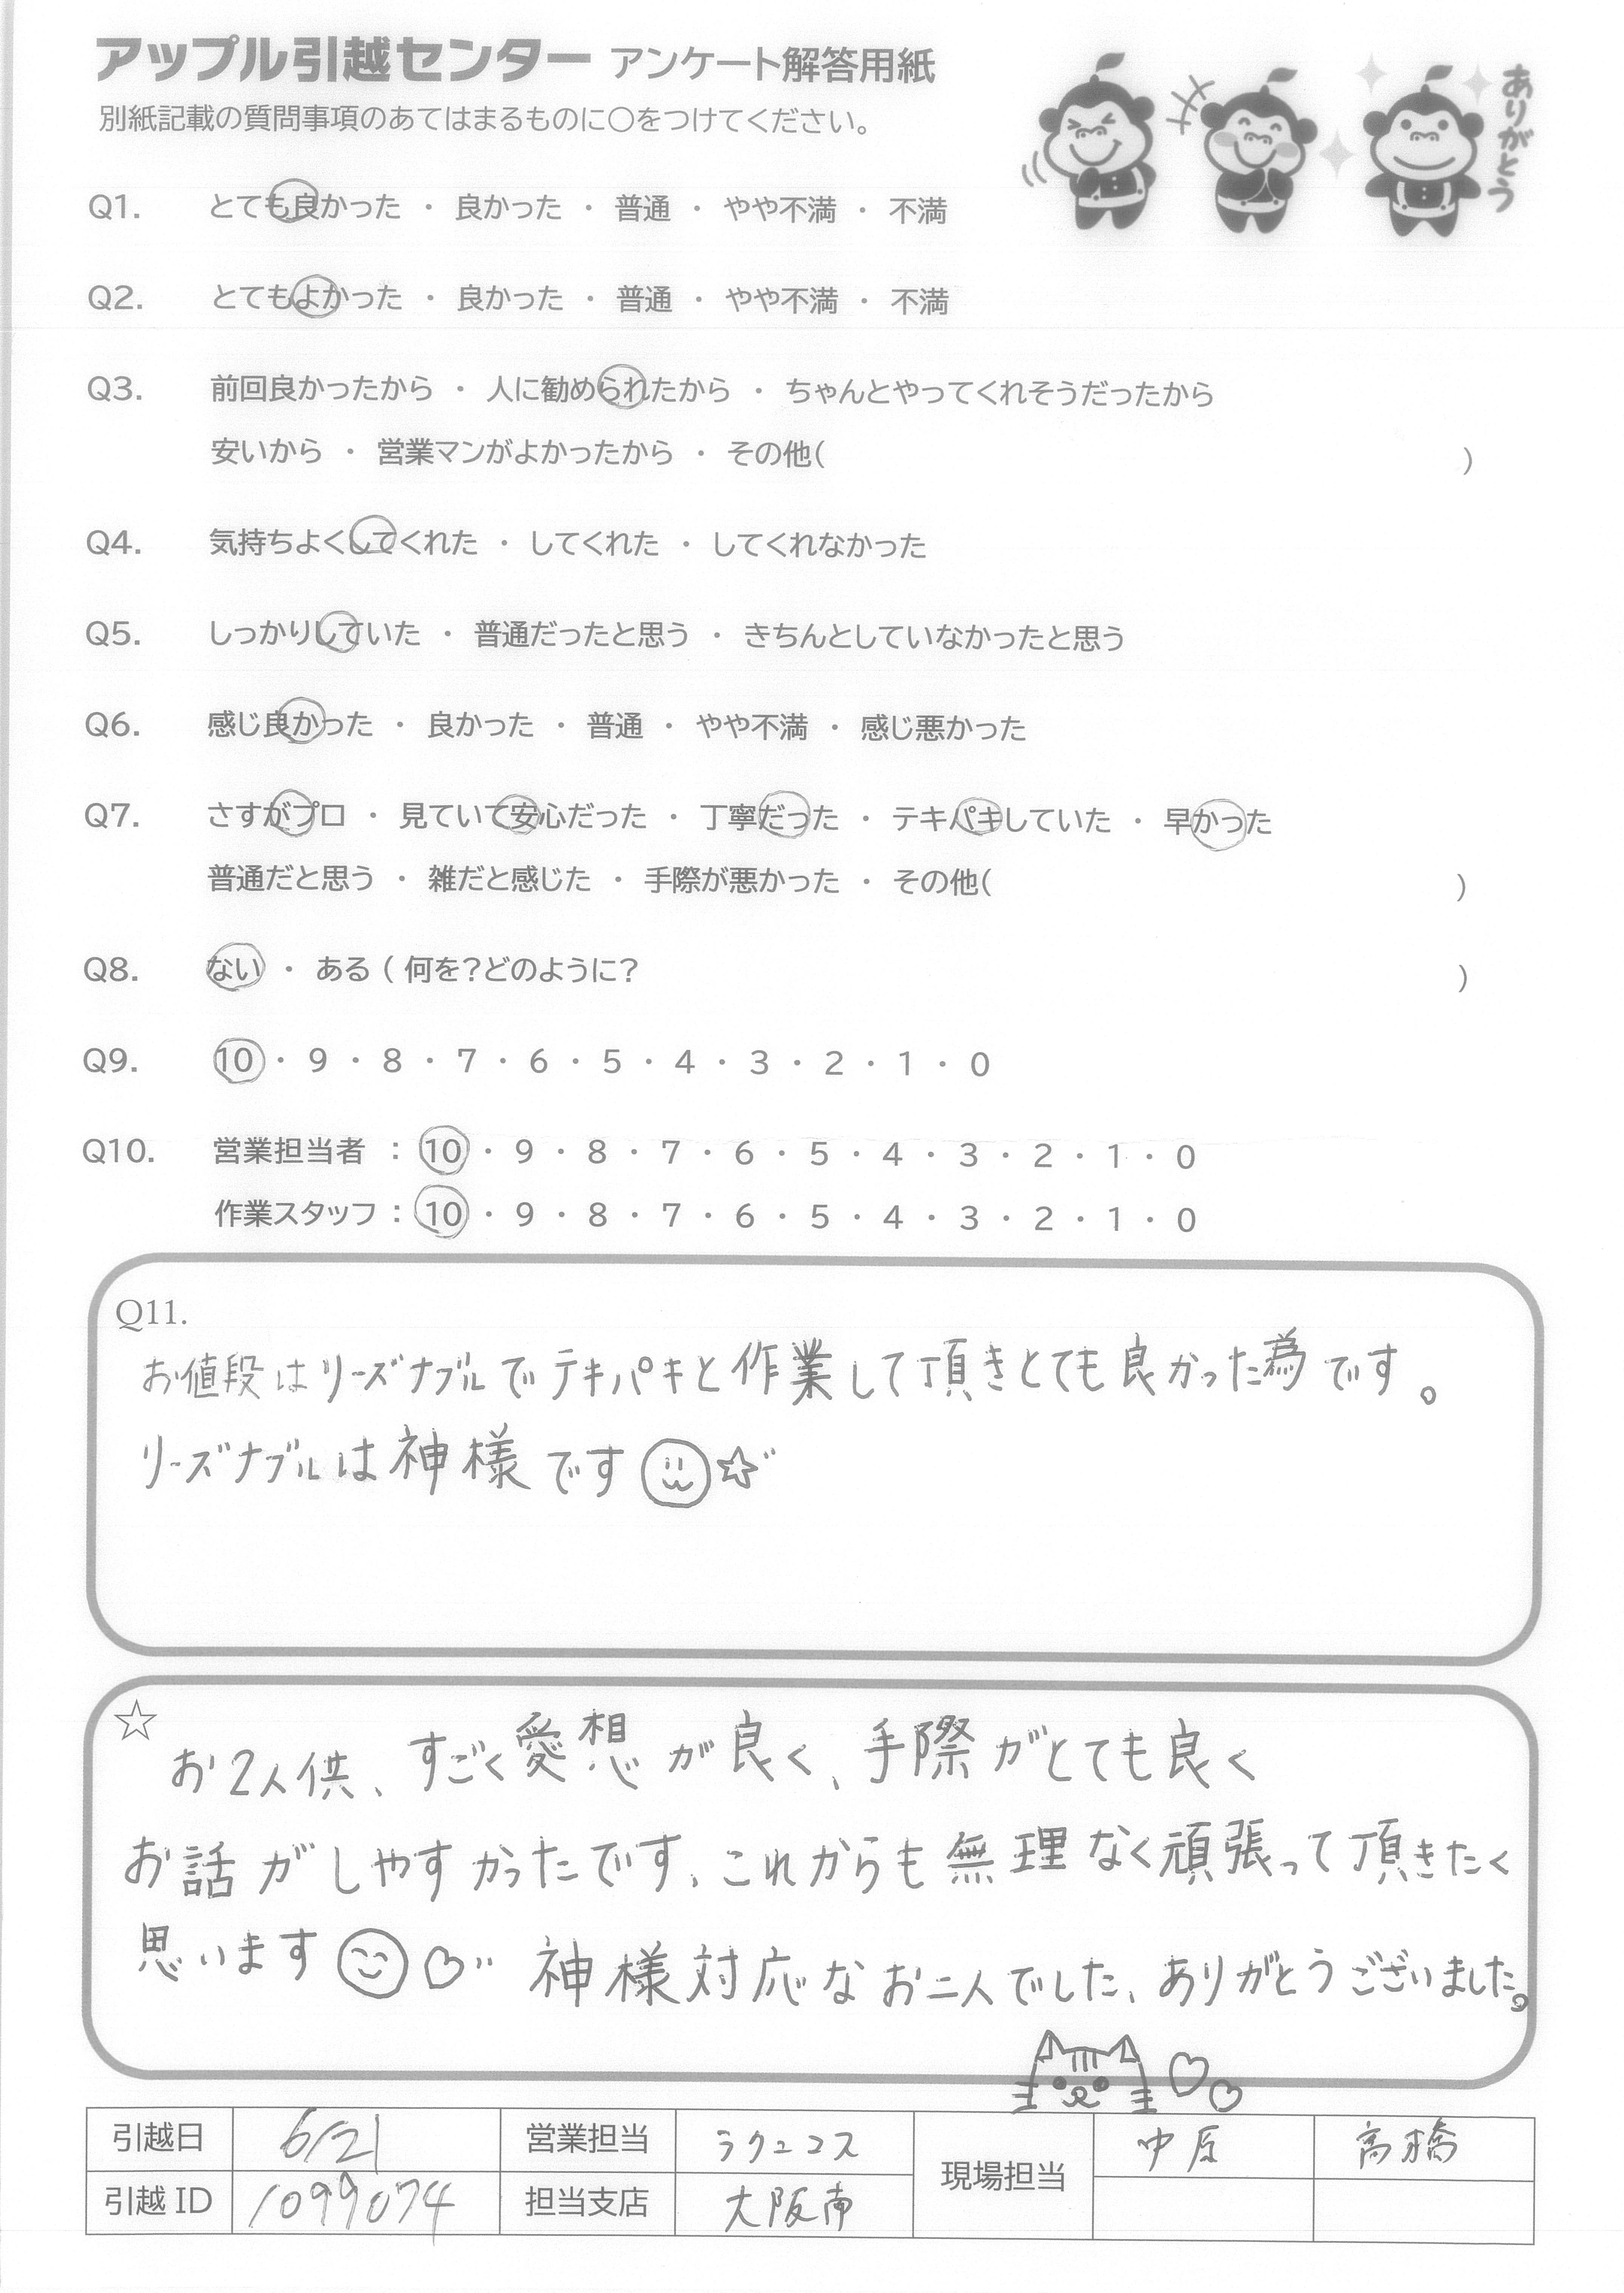 アップル引越センター アンケート解答用紙
別紙記載の質問事項のあてはまるものに〇をつけてください。
ありがとう
Q1. とても良かった ・ 良かった ・ 普通 ・ やや不満 ・ 不満
Q2. とてもよかった ・ 良かった ・ 普通 ・ やや不満 ・ 不満
Q3. 前回良かったから ・ 人に勧められたから ・ ちゃんとやってくれそうだったから
安いから ・ 営業マンがよかったから ・ その他( )
Q4. 気持ちよくしてくれた ・ してくれた ・ してくれなかった
Q5. しっかりしていた ・ 普通だったと思う ・ きちんとしていなかったと思う
Q6. 感じ良かった ・ 良かった ・ 普通 ・ やや不満 ・ 感じ悪かった
Q7. さすがプロ ・ 見ていて安心だった ・ 丁寧だった ・ テキパキしていた ・ 早かった
普通だと思う ・ 雑だと感じた ・ 手際が悪かった ・ その他( )
Q8. ない ・ ある ( 何を?どのように? )
Q9. 10 ・ 9 ・ 8 ・ 7 ・ 6 ・ 5 ・ 4 ・ 3 ・ 2 ・ 1 ・ 0
Q10. 営業担当者 : 10 ・ 9 ・ 8 ・ 7 ・ 6 ・ 5 ・ 4 ・ 3 ・ 2 ・ 1 ・ 0
作業スタッフ : 10 ・ 9 ・ 8 ・ 7 ・ 6 ・ 5 ・ 4 ・ 3 ・ 2 ・ 1 ・ 0
Q11.
お値段はリーズナブルでテキパキと作業して頂きとても良かった為です。
リーズナブルは神様です☆
☆
お2人供、すごく愛想が良く、手際がとても良く
お話がしやすかったです、これからも無理なく頑張って頂きたく
思います 神様対応なお二人でした、ありがとうございました。
引越日 6/21 営業担当 ラクニコス 現場担当 中原 高橋
引越 ID 1099074 担当支店 大阪南